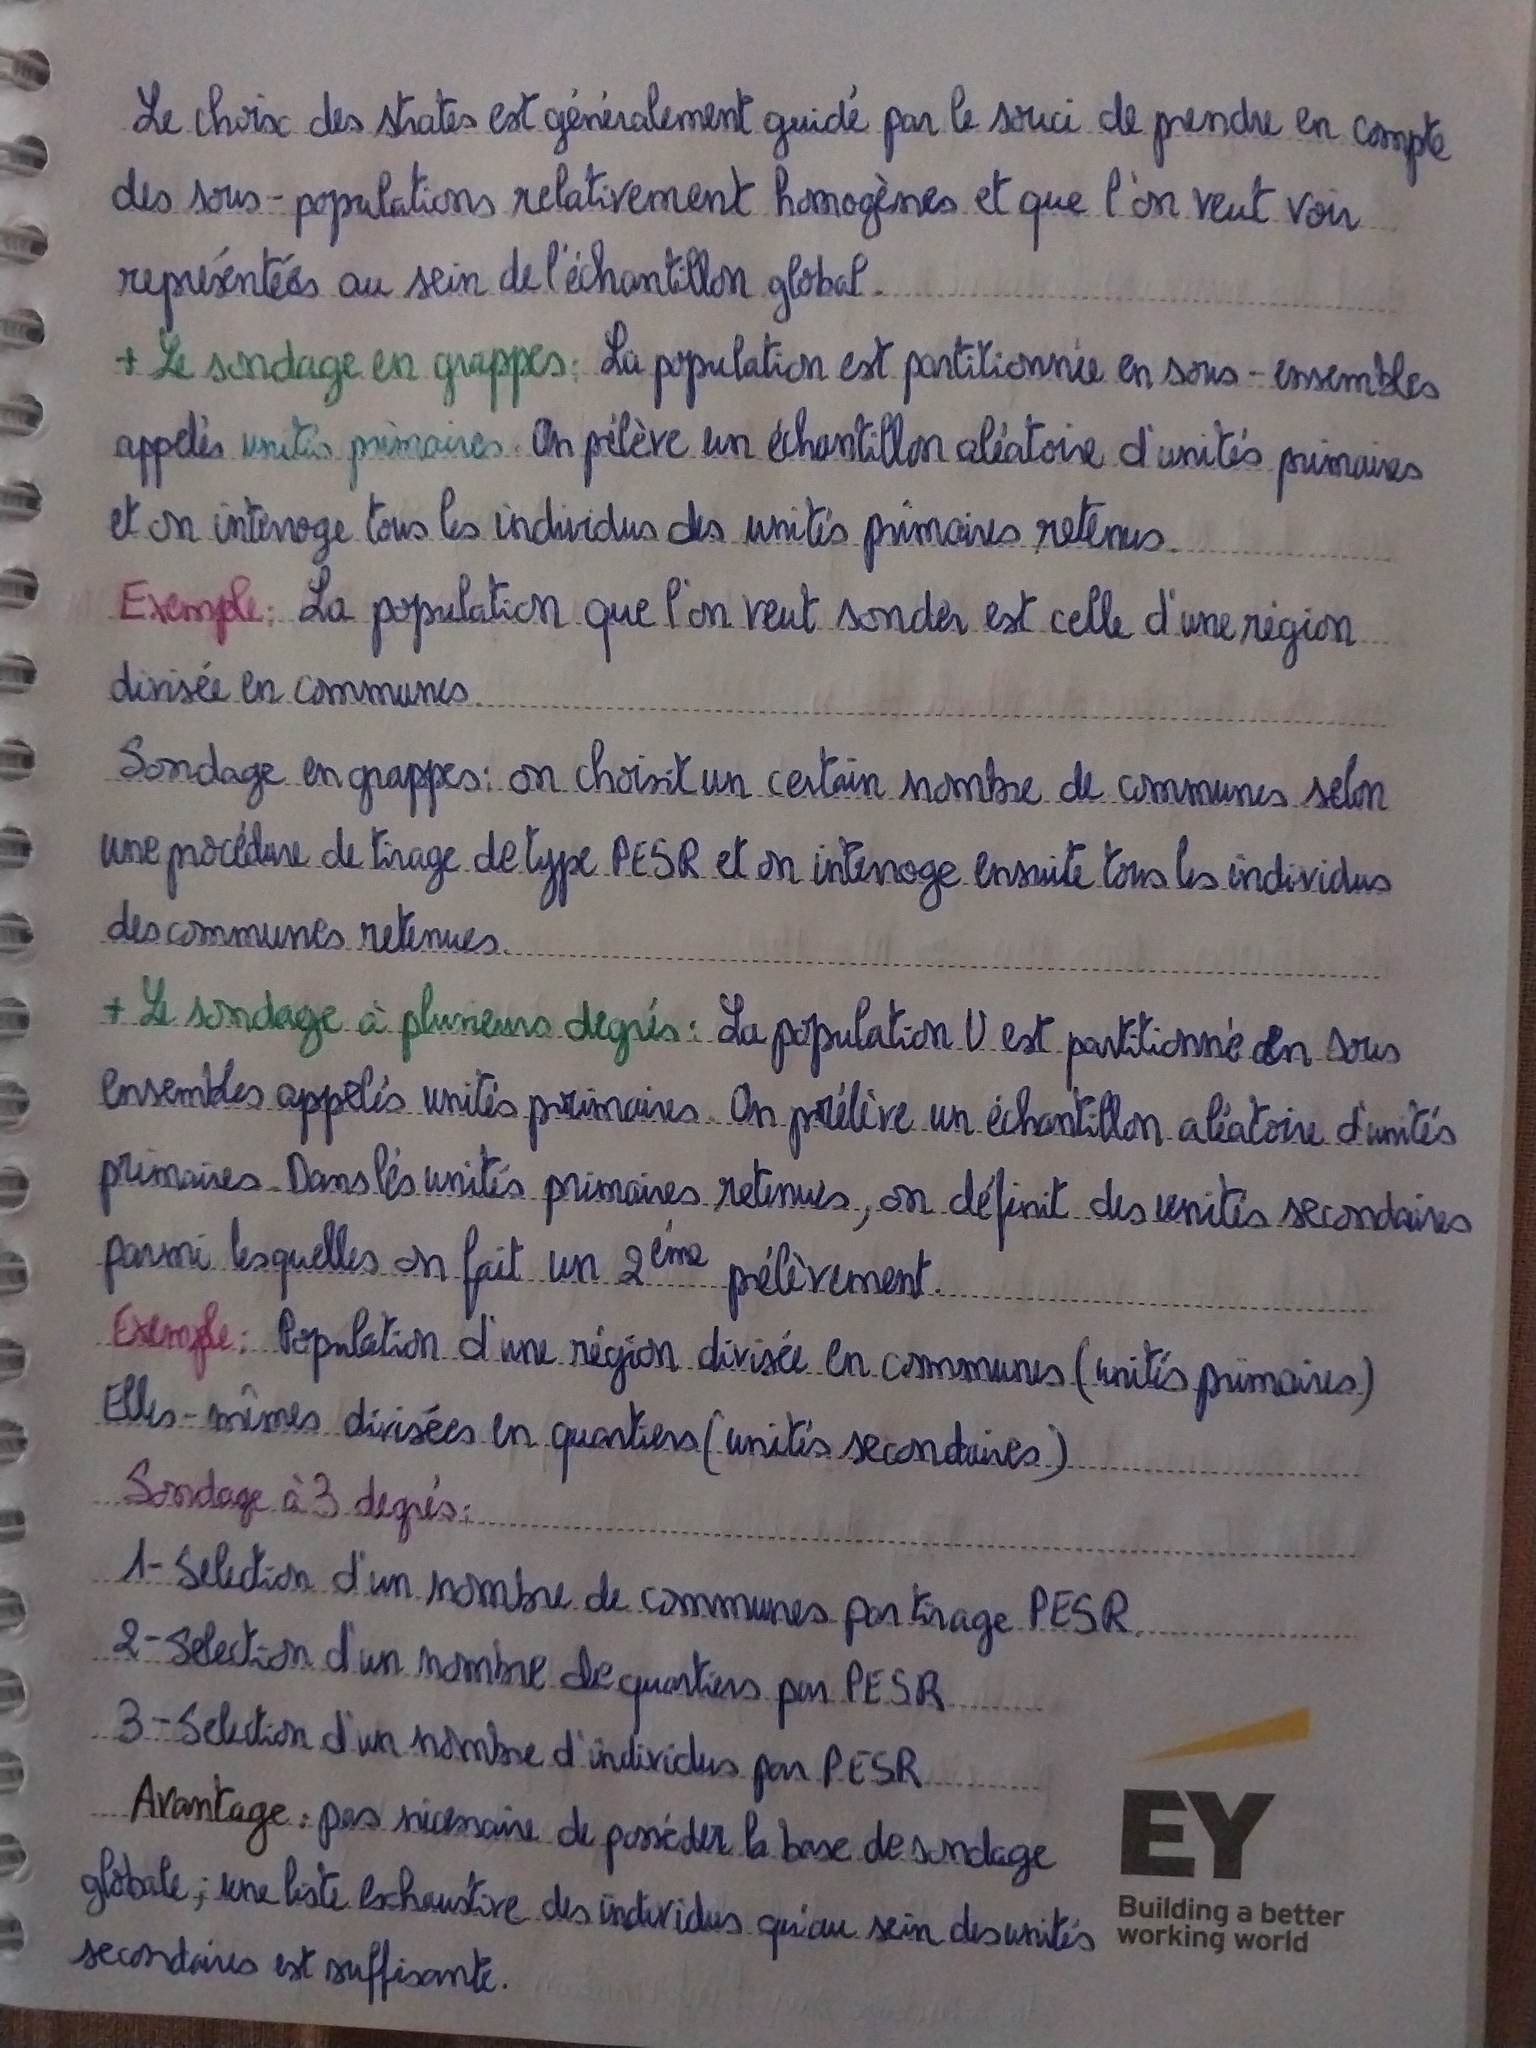 Le choix des strates est généralement guidé par le souci de prendre en compte
des sous-populations relativement homogènes et que l'on veut voir
représentées au sein de l'échantillon global.
+ Le sondage en grappes: La population est partitionnée en sous-ensembles
appelés unités primaires. On prélève un échantillon aléatoire d'unités primaires
et on interroge tous les individus des unités primaires retenus.
Exemple: La population que l'on veut sonder est celle d'une région
divisée en communes.
Sondage en grappes: on choisit un certain nombre de communes selon
une procédure de tirage de type PESR et on interroge ensuite tous les individus
des communes retenues.
+ Le sondage à plusieurs degrés: La population U est partitionné en sous
ensembles appelés unités primaires. On prélève un échantillon aléatoire d'unités
primaires. Dans les unités primaires retenues, on définit des unités secondaires
parmi lesquelles on fait un 2ème prélèvement.
Exemple: Population d'une région divisée en communes (unités primaires)
Elles-mêmes divisées en quartiers (unités secondaires)
Sondage à 3 degrés:
1- Selection d'un nombre de communes par tirage PESR.
2- Selection d'un nombre de quartiers par PESR
3- Selection d'un nombre d'individus par PESR
Avantage: pas nécessaire de posséder la base de sondage
globale; une liste exhaustive des individus qu'au sein des unités
secondaires est suffisante.
EY
Building a better
working world